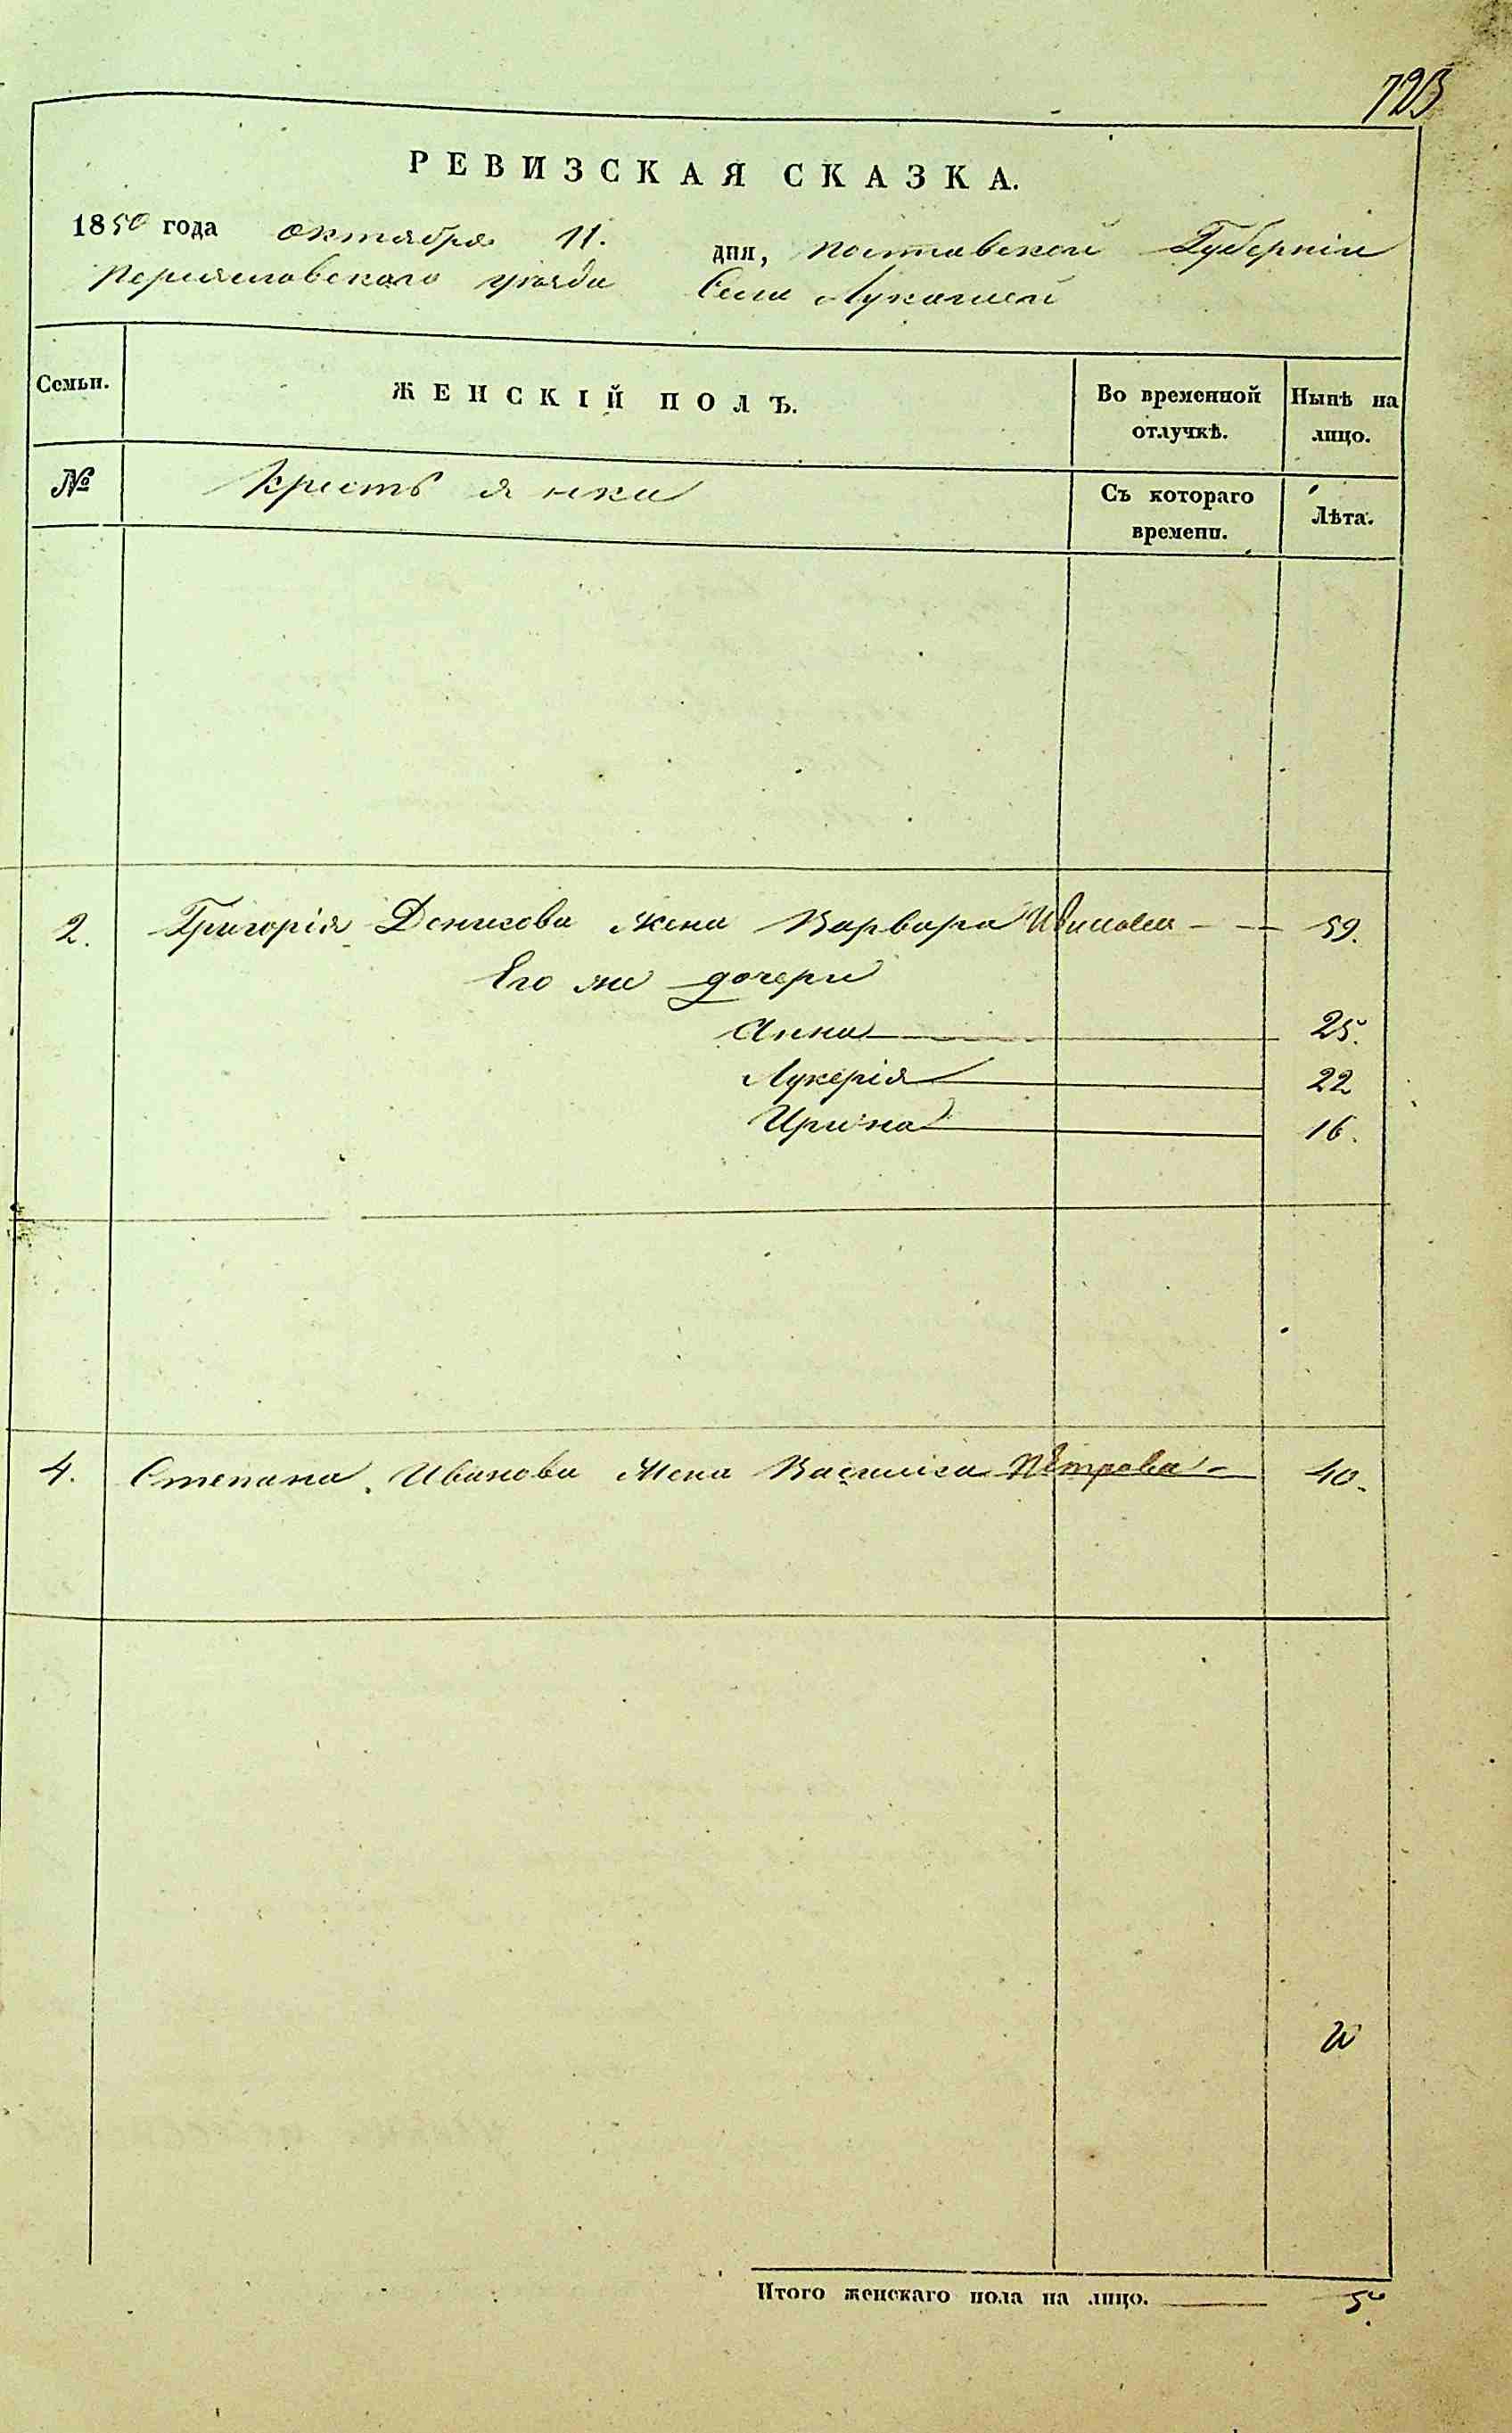 723
РЕВИЗСКАЯ СКАЗКА.
1850 года октября 11. дня, Полтавской Губерніи
Переяславского уѣзда Села Лукашей
Семьи.
ЖЕНСКІЙ ПОЛЪ.
Во временной
отлучкѣ.
Нынѣ на
лицо.
№
Крестьянки
Съ котораго
времени.
Лѣта.
2. Григорія Денисова жена Варвара Иванова 59.
Его же дочери
Анна 25.
Лукерія 22
Ирина 16.
4. Степана Иванова жена Василиса Пѣтрова 40.
Итого женскаго пола на лицо. 5.